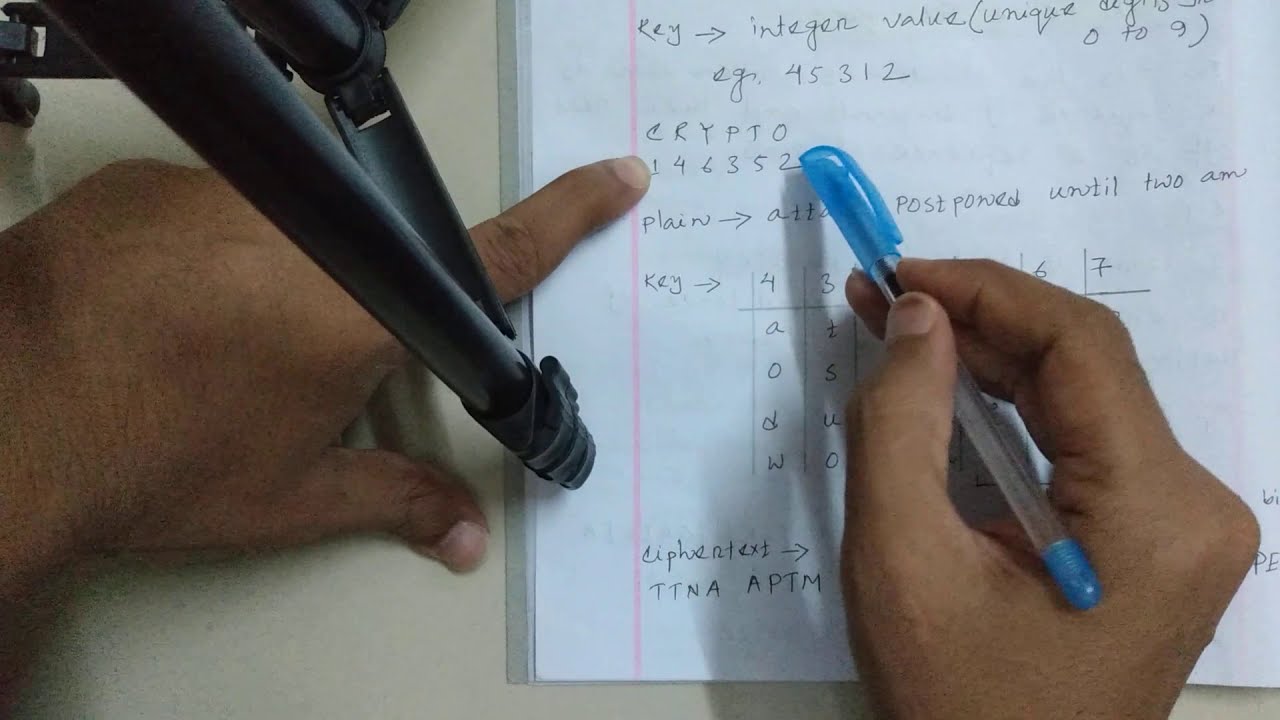 Key → integer value (unique
0 to 9)
eg. 45312
CRYPTO
146352
Plain → postponed until two am
Key → 4 3 6 7
a t
o s
d u
w o
bi
ciphertext →
PE
TTNA APTM